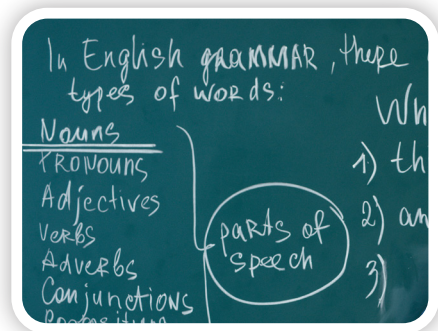 In English GRAMMAR, there
types of words:
Nouns
PRONOUNS
Adjectives
VERBS
Adverbs
Conjunctions
parts of
speech
Wh
1) th
2) an
3)